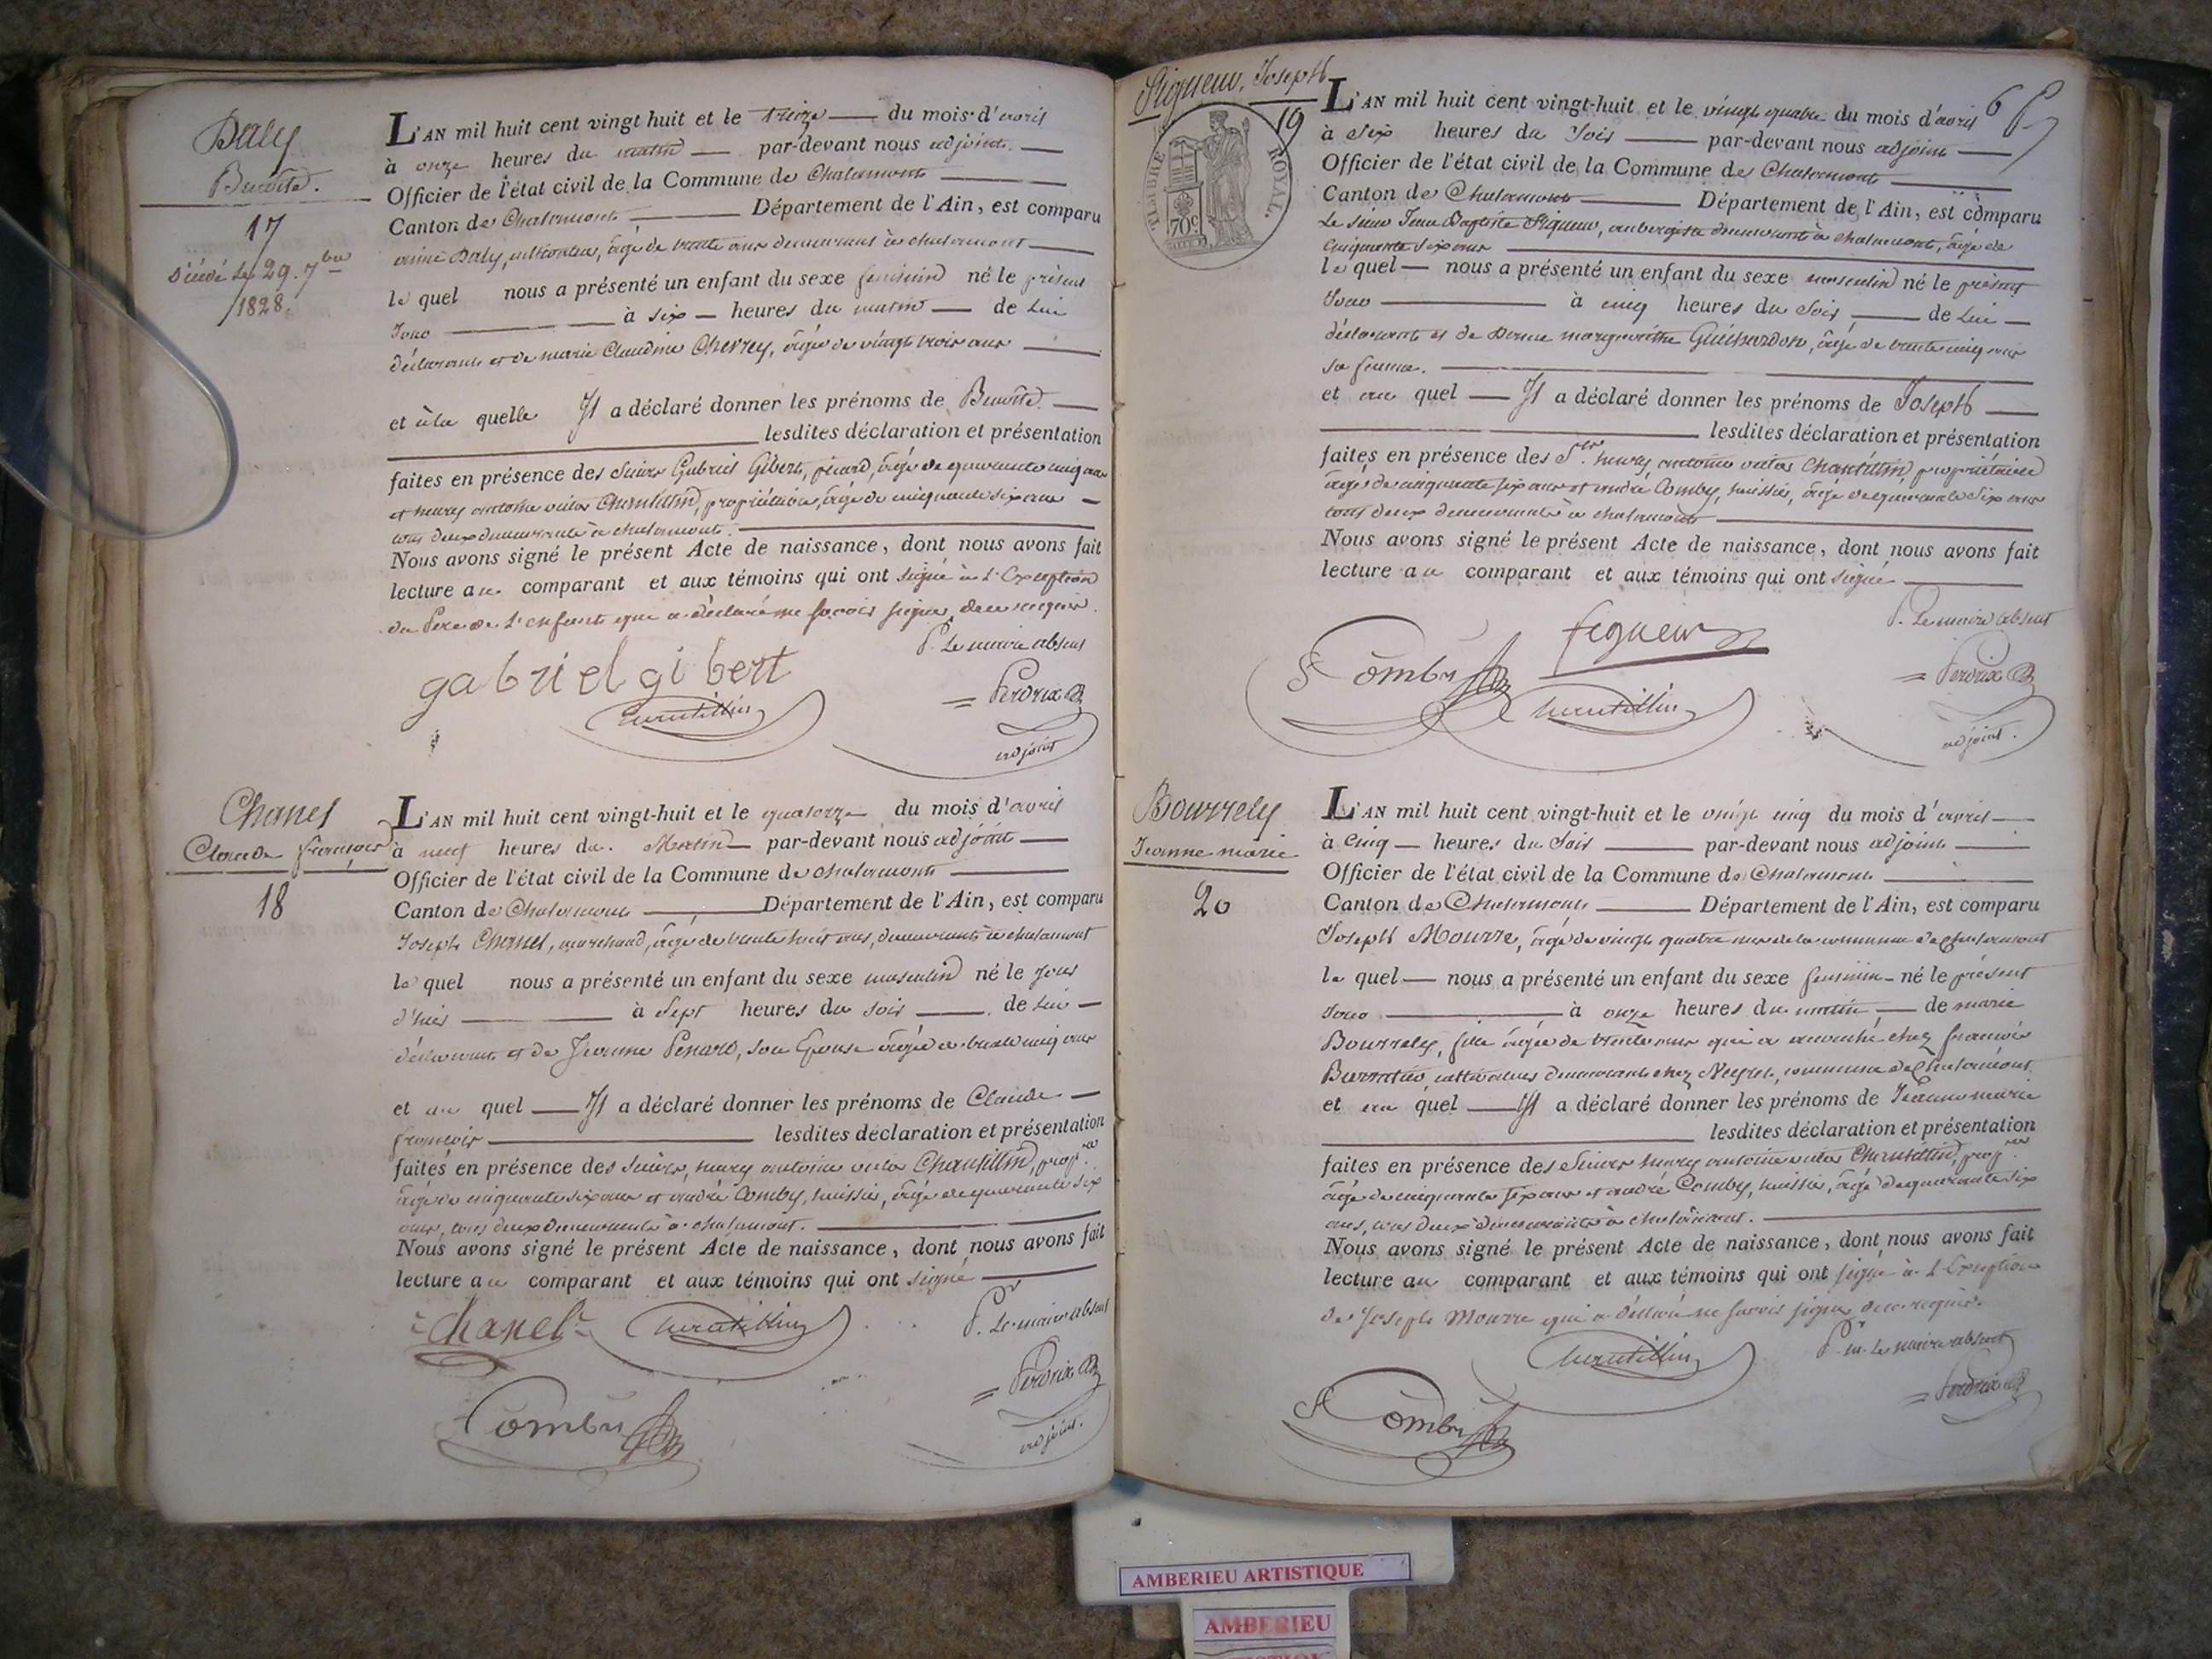 Daly
Benoîte.
17
Décédé le 29. 7bre
1828.
L'AN mil huit cent vingt huit et le treize du mois d'avril
à onze heures du matin par-devant nous adjoint
Officier de l'état civil de la Commune de Chalamont
Canton de Chalamont Département de l'Ain, est comparu
Daly, âgé de trente ans demeurant à chalamont
le quel nous a présenté un enfant du sexe feminin né le présent
Jour à six heures du matin de Lui
déclarant et de marie Claudine Cherrey, âgée de vingt trois ans
et à la quelle Il a déclaré donner les prénoms de Benoîte
lesdites déclaration et présentation
faites en présence des Sieurs Gabriel Gibert, âgé de quarante cinq ans
et henry antoine victor Chantillin, propriétaire, âgé de cinquante six ans
tous deux demeurants à chalamont.
Nous avons signé le présent Acte de naissance, dont nous avons fait
lecture au comparant et aux témoins qui ont signé à L'Exception
du Pere de L'enfant qui a déclaré ne savoir signer, de ce requis.
P. Le maire absent
gabriel gibert
Perdrix
Chantillin
adjoint
Chanel
Claude françois
18
L'AN mil huit cent vingt-huit et le quatorze du mois d'avril
à neuf heures du Matin par-devant nous adjoint
Officier de l'état civil de la Commune de chalamont
Canton de Chalamont Département de l'Ain, est comparu
Joseph Chanel, marchand, âgé de trente huit ans, demeurant à chalamont
le quel nous a présenté un enfant du sexe masculin né le jour
d'hier à Sept heures du soir de Lui
déclarant et de Jeanne Penard, son Epouse âgée de trente cinq ans
et au quel Il a déclaré donner les prénoms de Claude
françois lesdites déclaration et présentation
faites en présence des Sieurs, henry antoine victor Chantillin, propre
âgé de cinquante six ans et andré Comby, huissier, âgé de quarante six
ans, tous deux demeurants à chalamont.
Nous avons signé le présent Acte de naissance, dont nous avons fait
lecture au comparant et aux témoins qui ont signé
Chanel Chantillin P. Le maire absent
Perdrix
Comby
adjoint.
Figueur, Joseph
19
TIMBRE ROYAL.
70c
6
L'AN mil huit cent vingt-huit et le vingt quatre du mois d'avril
à six heures du Soir par-devant nous adjoint
Officier de l'état civil de la Commune de Chalamont
Canton de Chalamont Département de l'Ain, est comparu
Le sieur Jean Baptiste Figueur, aubergiste demeurant à chalamont, âgé de
cinquante six ans
le quel nous a présenté un enfant du sexe masculin né le présent
Jour à cinq heures du Soir de Lui
déclarant et de Dame margueritte Guichardon, âgé de trente cinq ans
sa femme.
et au quel Il a déclaré donner les prénoms de Joseph
lesdites déclaration et présentation
faites en présence des Srs. henry antoine victor Chantillin, propriétaire
âgé de cinquante six ans et andré Comby, huissier, âgé de quarante six ans
tous deux demeurants à chalamont
Nous avons signé le présent Acte de naissance, dont nous avons fait
lecture au comparant et aux témoins qui ont signé
P. Le maire absent
figueur
Comby
Perdrix
Chantillin
adjoint.
Bourrely
Jeanne marie
20
L'AN mil huit cent vingt-huit et le vingt cinq du mois d'avril
à Cinq heures du Soir par-devant nous adjoint
Officier de l'état civil de la Commune de Chalamont
Canton de Chalamont Département de l'Ain, est comparu
Joseph Mourre, âgé de vingt quatre ans de la commune de Chalamont
le quel nous a présenté un enfant du sexe feminin né le présent
Jour à onze heures du matin de marie
Bourrely, fille âgée de trente ans qui a accouché chez françois
cultivateur demeurant chez commune de Chalamont
et au quel Il a déclaré donner les prénoms de Jeanne marie
lesdites déclaration et présentation
faites en présence des Sieurs henry antoine victor Chantillin, propre
âgé de cinquante six ans et andré Comby, huissier, âgé de quarante six
ans, tous deux demeurants à chalamont.
Nous avons signé le présent Acte de naissance, dont nous avons fait
lecture au comparant et aux témoins qui ont signé à L'Exception
de Joseph Mourre qui a déclaré ne savoir signer de ce requis.
Chantillin Le maire absent
Perdrix
Comby
AMBERIEU ARTISTIQUE
AMBERIEU